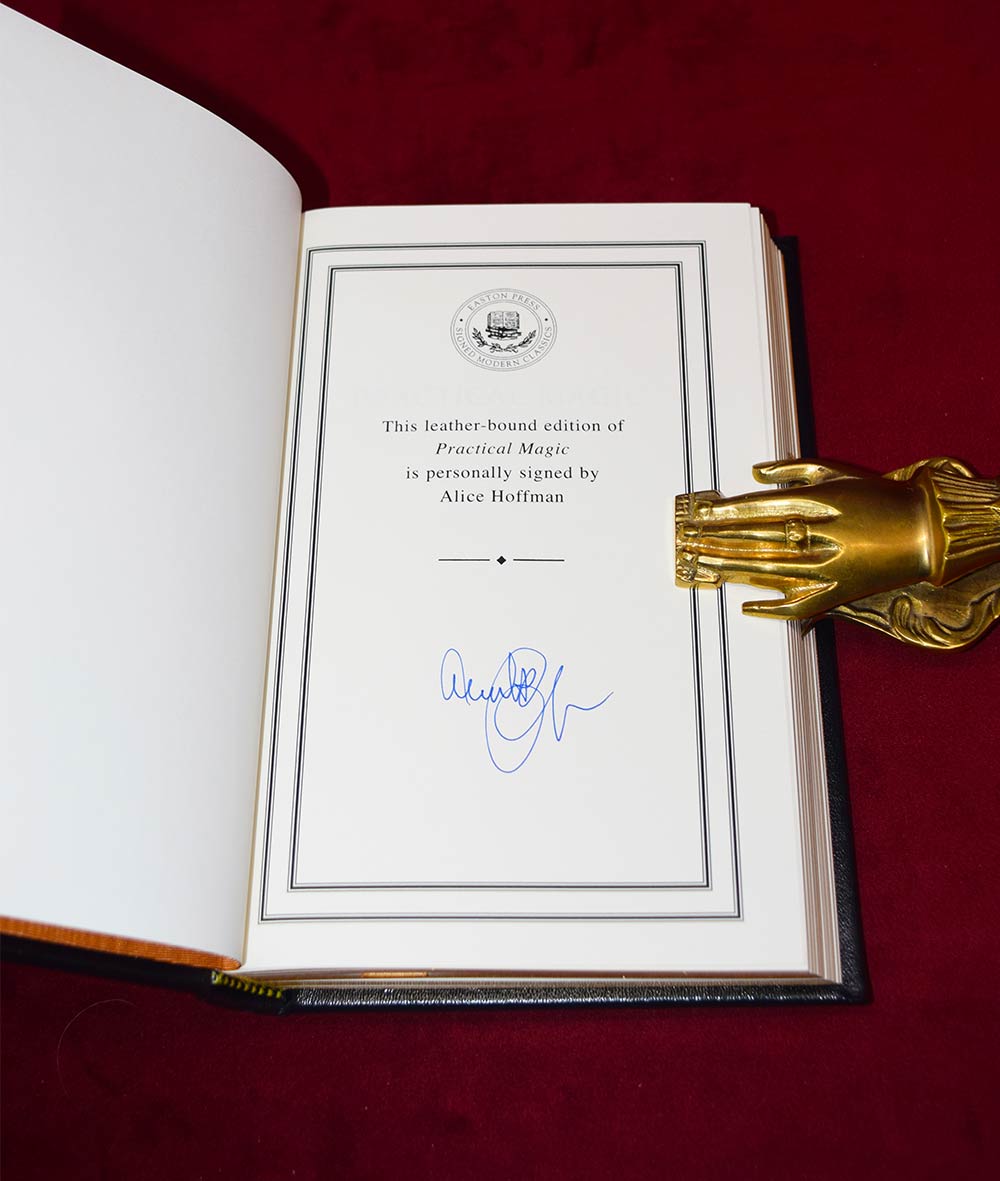 EASTON PRESS
SIGNED MODERN CLASSICS
This leather-bound edition of
Practical Magic
is personally signed by
Alice Hoffman